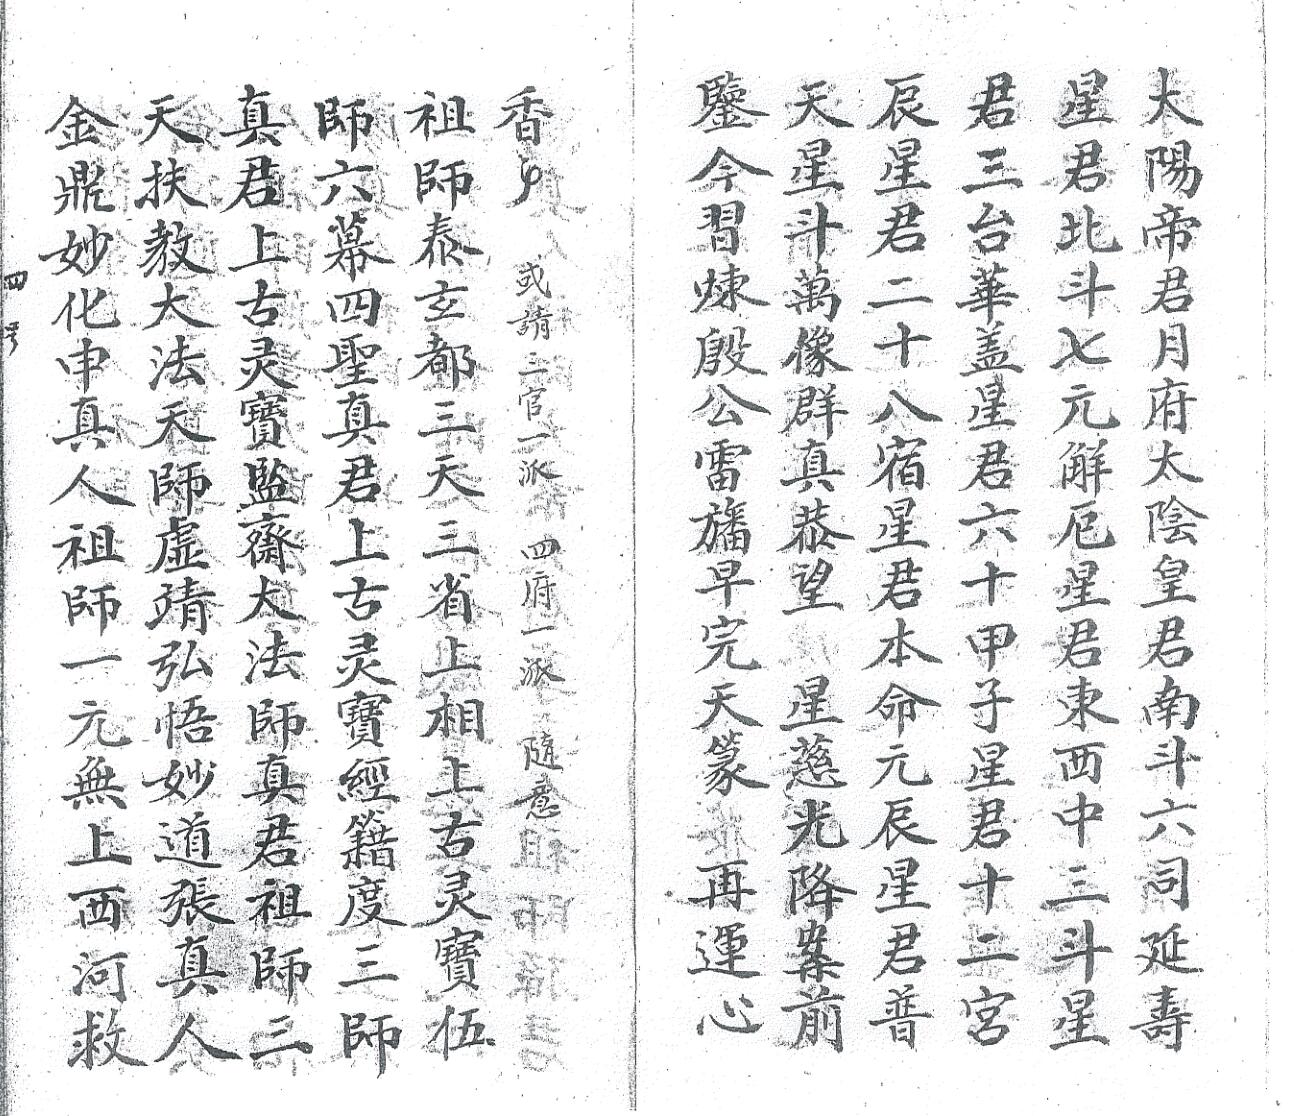 太陽帝君月府太陰皇君南斗六司延壽
星君北斗七元解厄星君東西中三斗星
君三台華盖星君六十甲子星君十二宮
辰星君二十八宿星君本命元辰星君普
天星斗萬像群真恭望　星慈光降案前
鑒今習煉殷公雷旛早完天篆　再運心
香　或請三官一派　四府一派　隨意
祖師泰玄都三天三省上相上古灵寶伍
師六幕四聖真君上古灵寶經籍度三師
真君上古灵寶監齋大法師真君祖師三
天扶教大法天師虛靖弘悟妙道張真人
金鼎妙化申真人祖師一元無上西河救
四